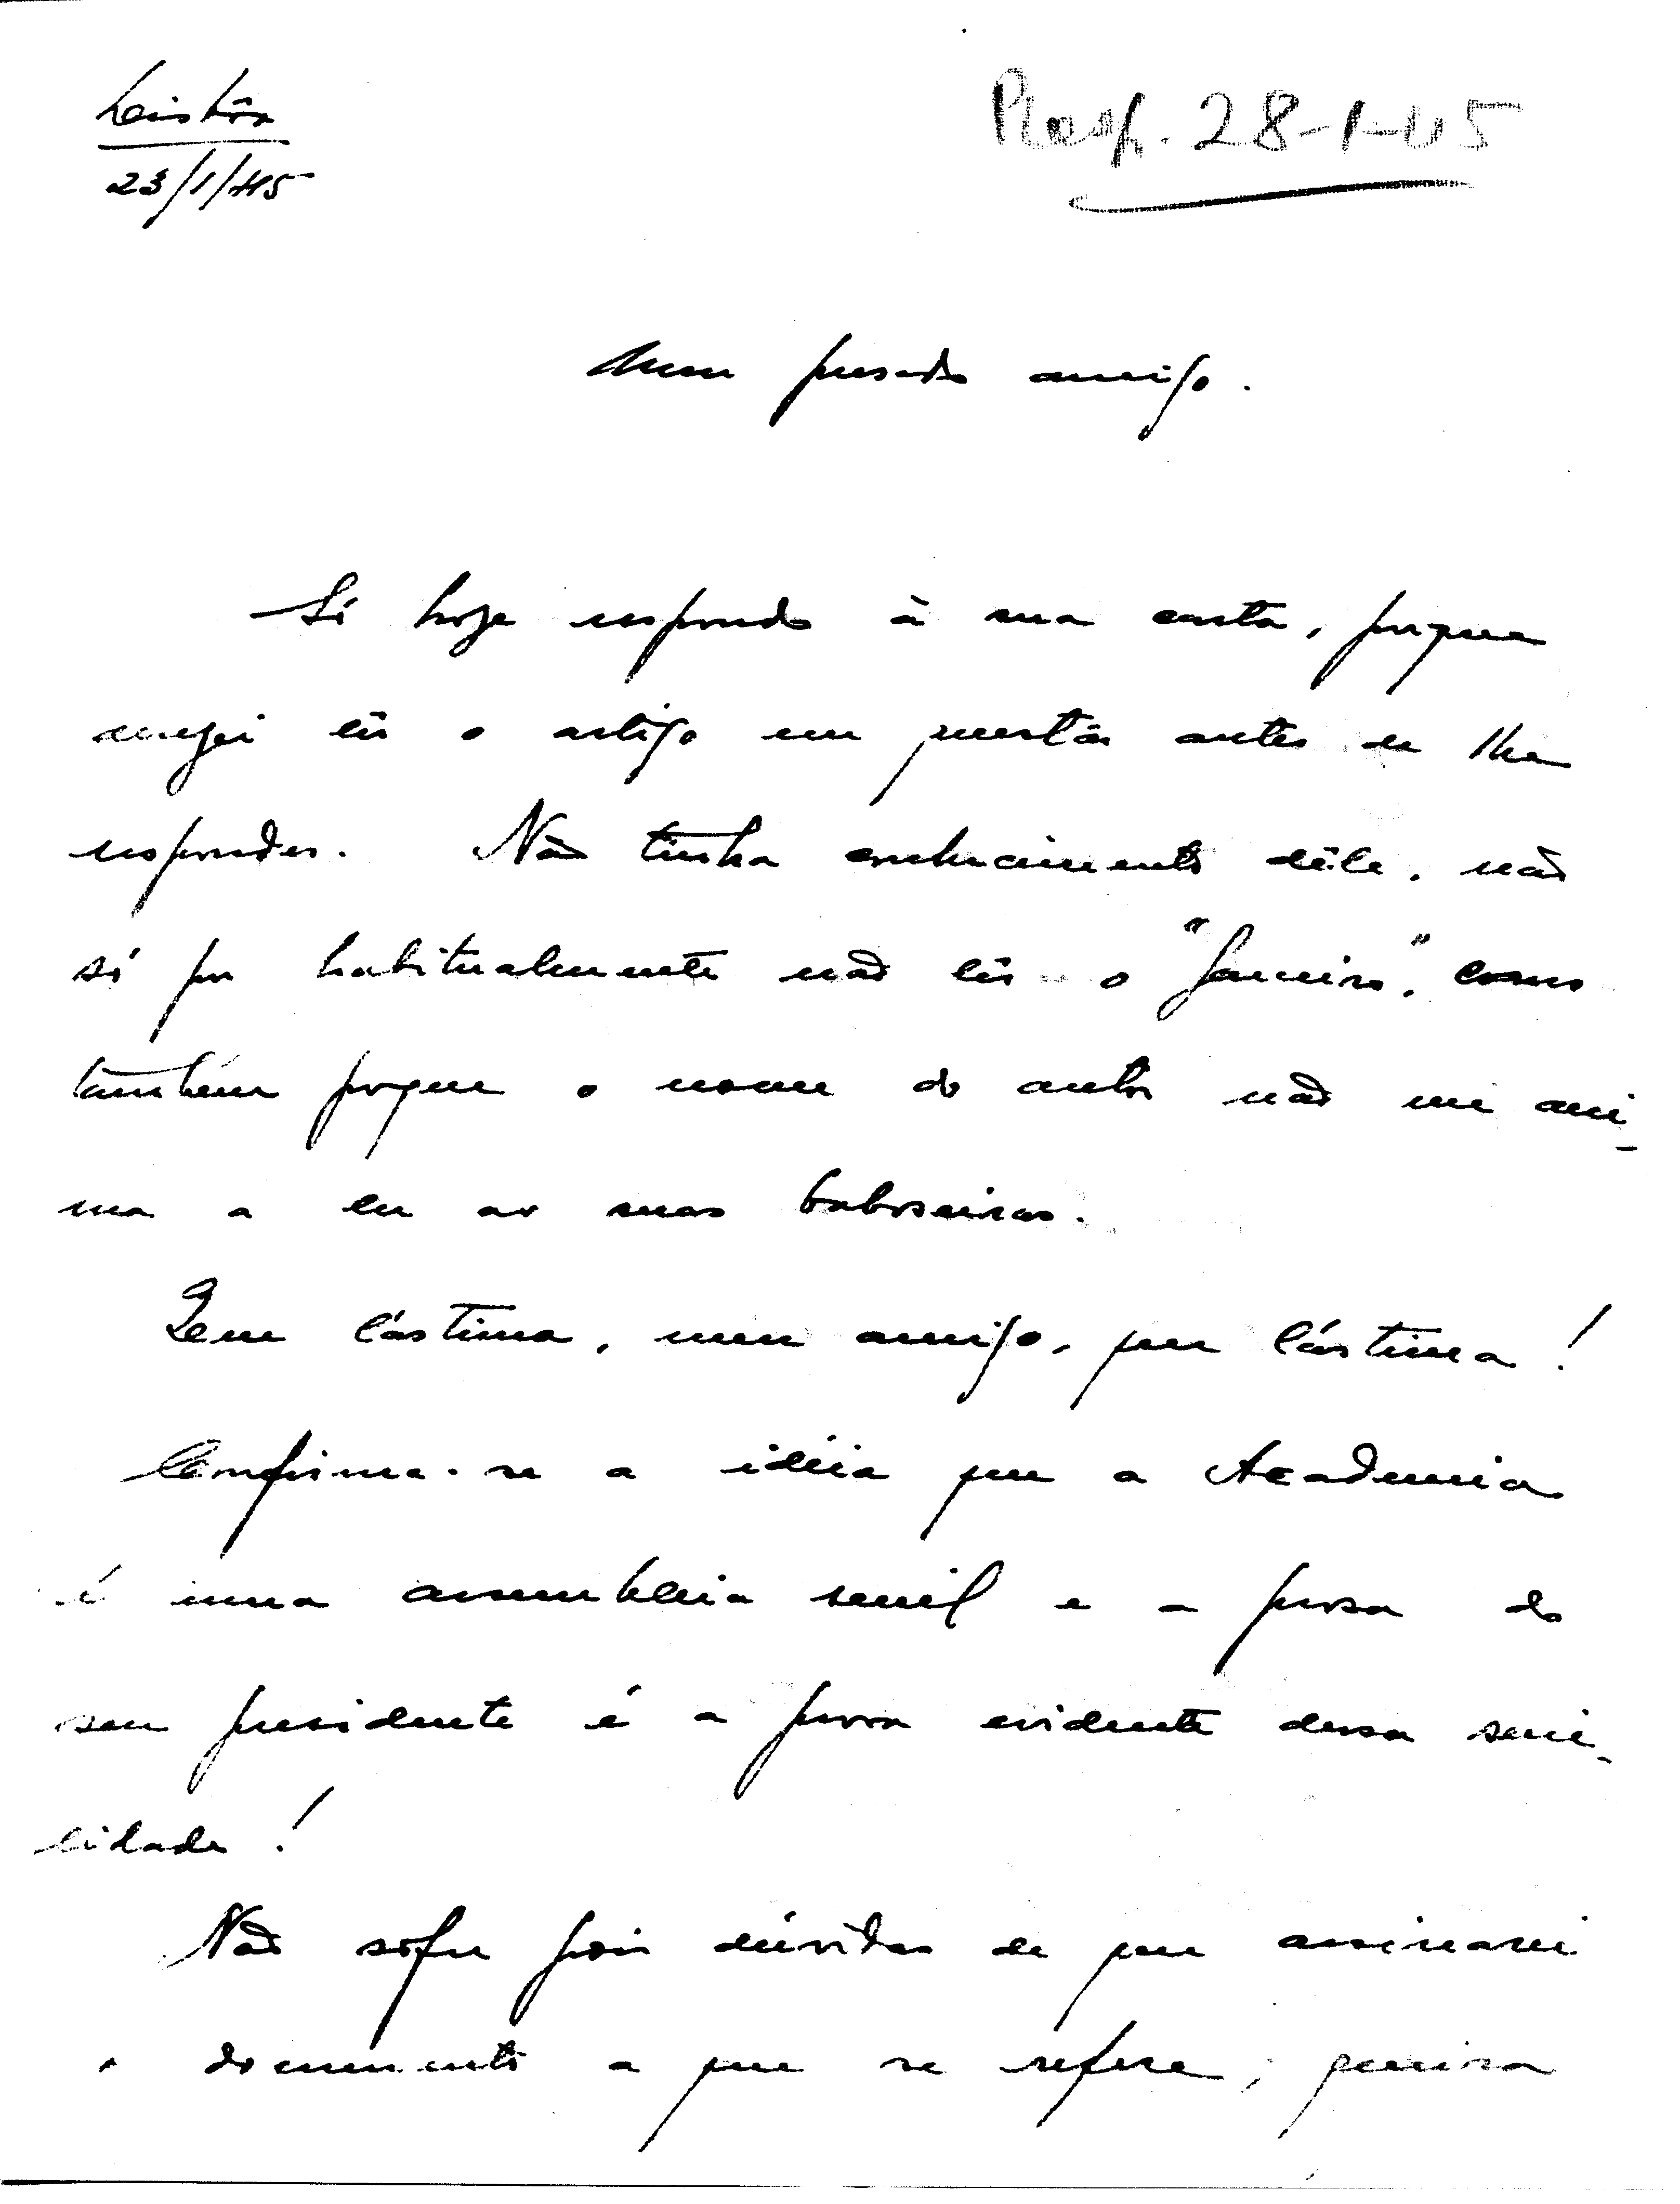 Lisbôa
23/1/45
Resp. 28-1-45
Meu prezado amigo.
Só hoje respondo à sua carta, porque
desejei lêr o artigo em questão antes de lhe
responder. Não tinha conhecimento dêle, não
só por habitualmente não lêr o "Janeiro", como
também porque o nome do autor não me ani-
ma a ler as suas baboseiras.
Que lástima, meu amigo, que lástima!
Confirma-se a idéia que a Academia
é uma assembleia senil e a prosa do
seu presidente é a prova evidente dessa seni-
lidade!
Não sofre pois dúvidas de que assinarei
o documento a que se refere; queira